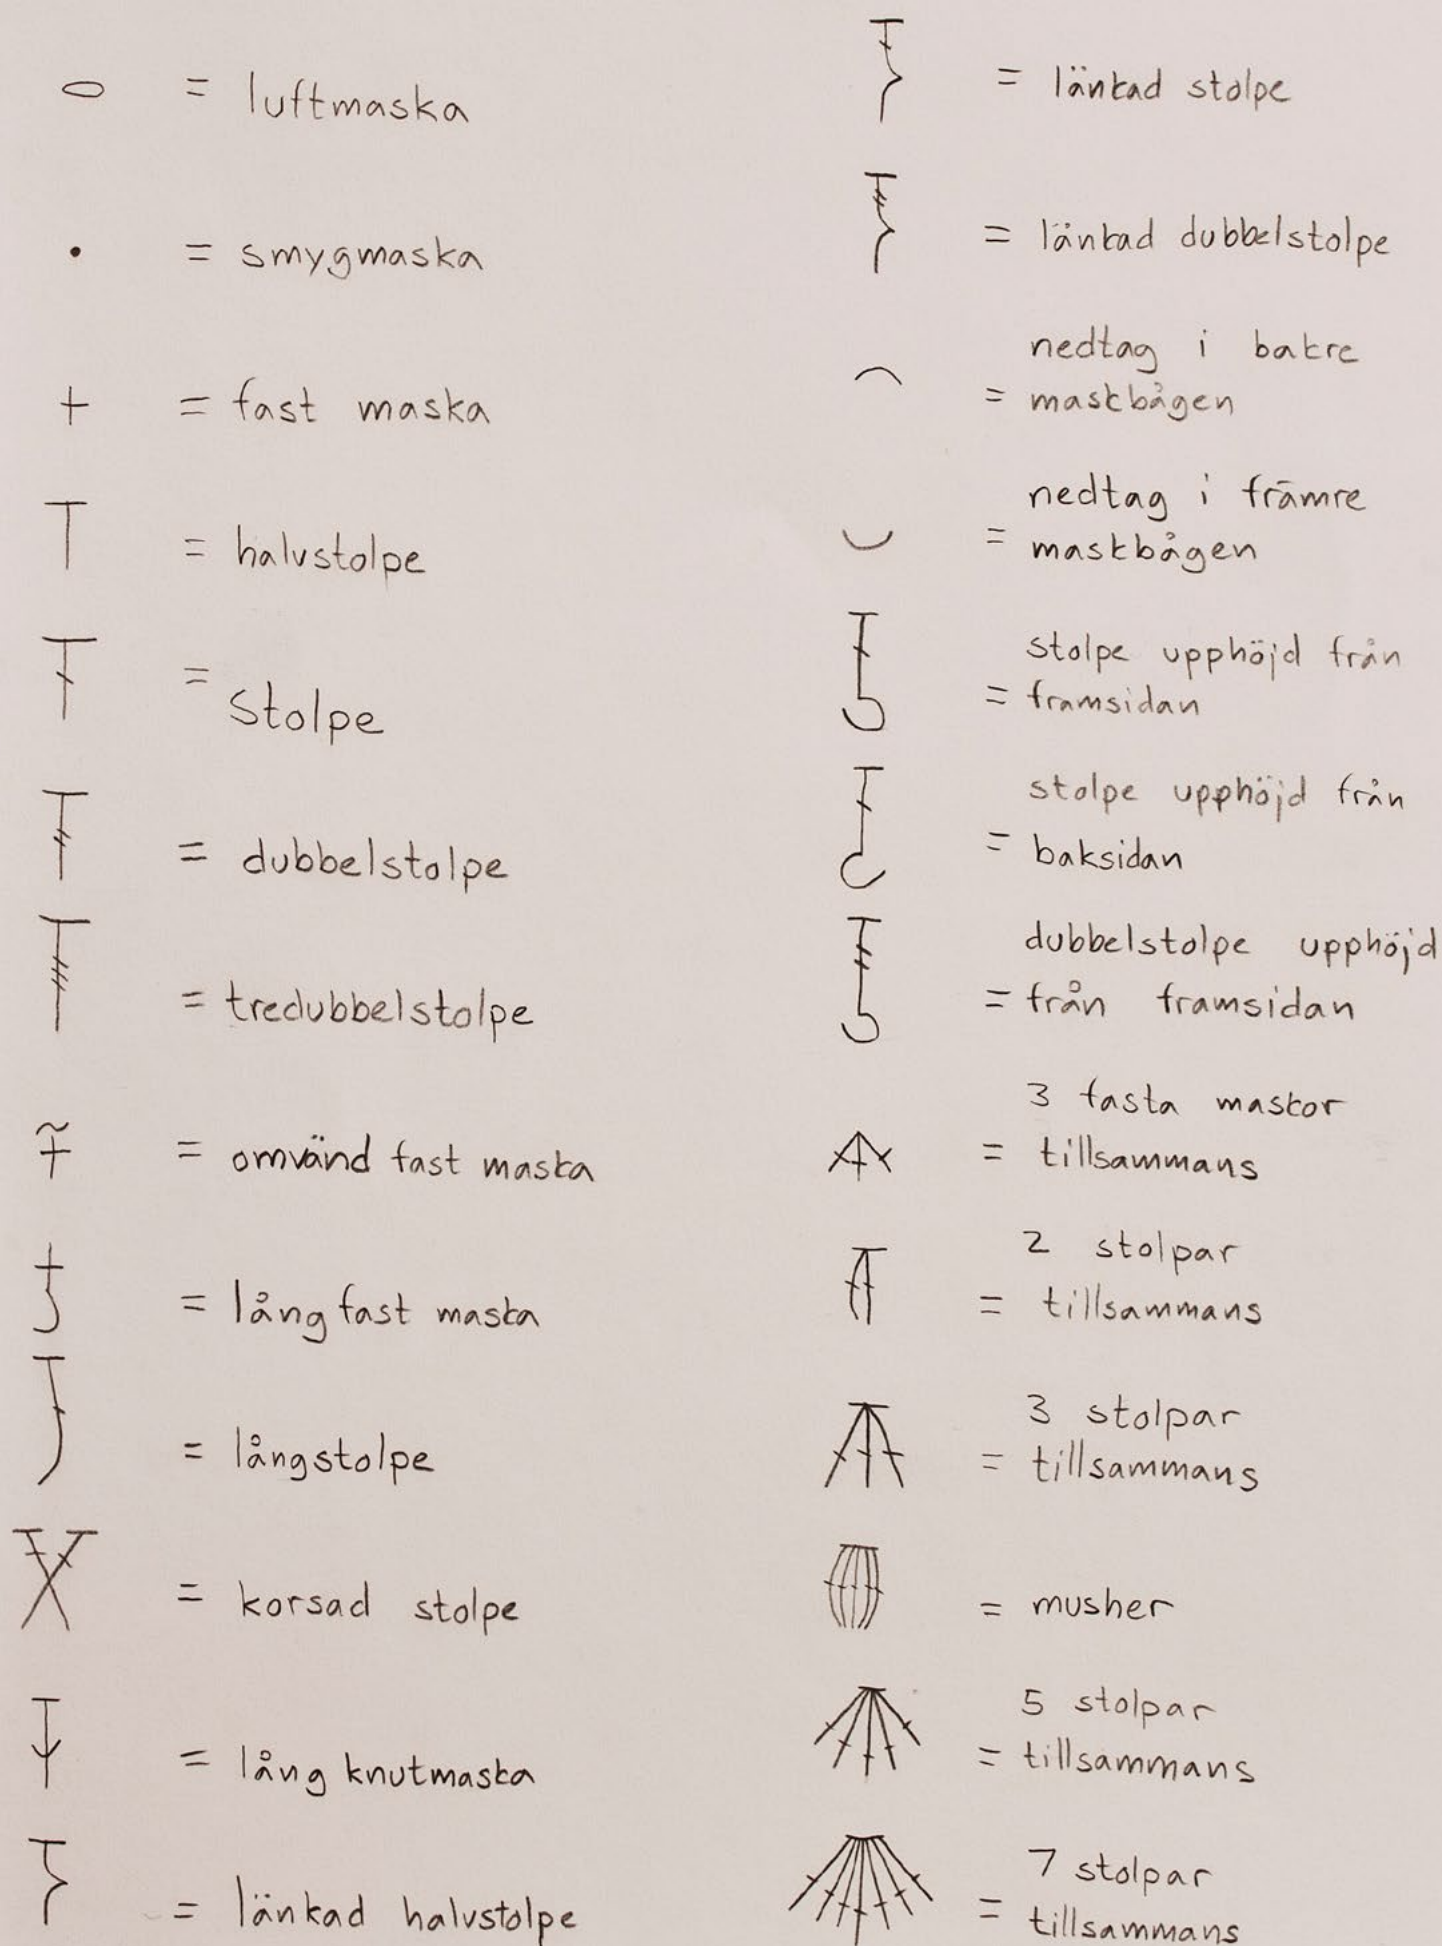 = luftmaska
= smygmaska
= fast maska
= halvstolpe
= stolpe
= dubbelstolpe
= tredubbelstolpe
= omvänd fast maska
= lång fast maska
= långstolpe
= korsad stolpe
= lång knutmaska
= länkad halvstolpe
= länkad stolpe
= länkad dubbelstolpe
nedtag i bakre
= maskbågen
nedtag i främre
= maskbågen
stolpe upphöjd från
= framsidan
stolpe upphöjd från
= baksidan
dubbelstolpe upphöjd
= från framsidan
3 fasta maskor
= tillsammans
2 stolpar
= tillsammans
3 stolpar
= tillsammans
= musher
5 stolpar
= tillsammans
7 stolpar
= tillsammans